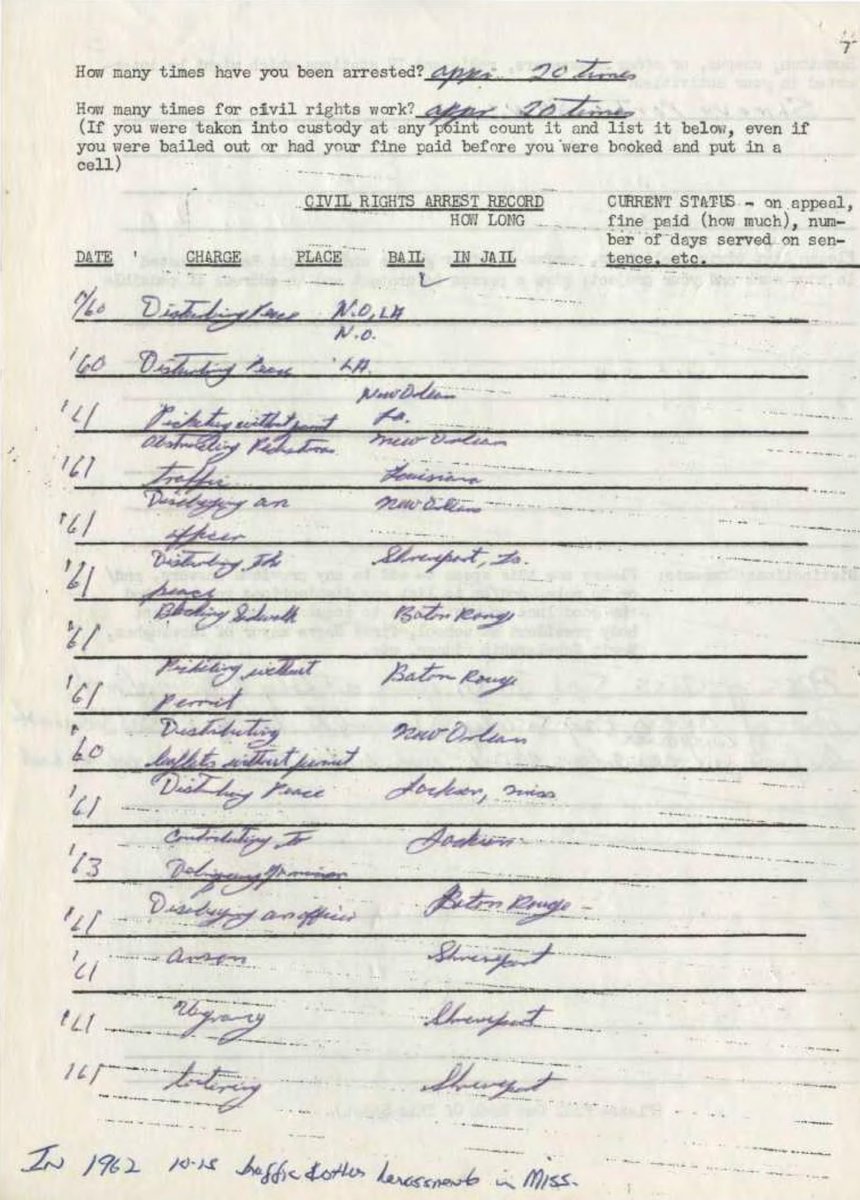 7
How many times have you been arrested? appr 20 times
How many times for civil rights work? appr 20 times
(If you were taken into custody at any point count it and list it below, even if
you were bailed out or had your fine paid before you were booked and put in a
cell)
CIVIL RIGHTS ARREST RECORD
HOW LONG
CURRENT STATUS - on appeal,
fine paid (how much), num-
ber of days served on sen-
tence, etc.
DATE CHARGE PLACE BAIL IN JAIL
/60 Disturbing Peace N.O, LA
N.O.
'60 Disturbing Peace LA.
New Orlean
'61 Picketing without permit La.
Obstructing Pedestrian New Orlean
'61 traffic Louisiana
Disobeying an New Orleans
'61 officer
Disturbing the Shreveport, La.
'61 peace
Blocking Sidewalk Baton Rouge
'61
Picketing without Baton Rouge
'61 permit
Distributing New Orlean
'60 leaflets without permit
Disturbing Peace Jackson, Miss
'61
Contributing to Jackson
'63 Delinquency of minor
Disobeying an officer Baton Rouge
'61
arson Shreveport
'61
Vagrancy Shreveport
'61
loitering Shreveport
'61
In 1962 10-15 traffic & other harassments in Miss.